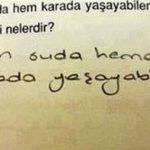 la hem karada yaşayabilen
i nelerdir?
n suda hem
ada yaşayabi